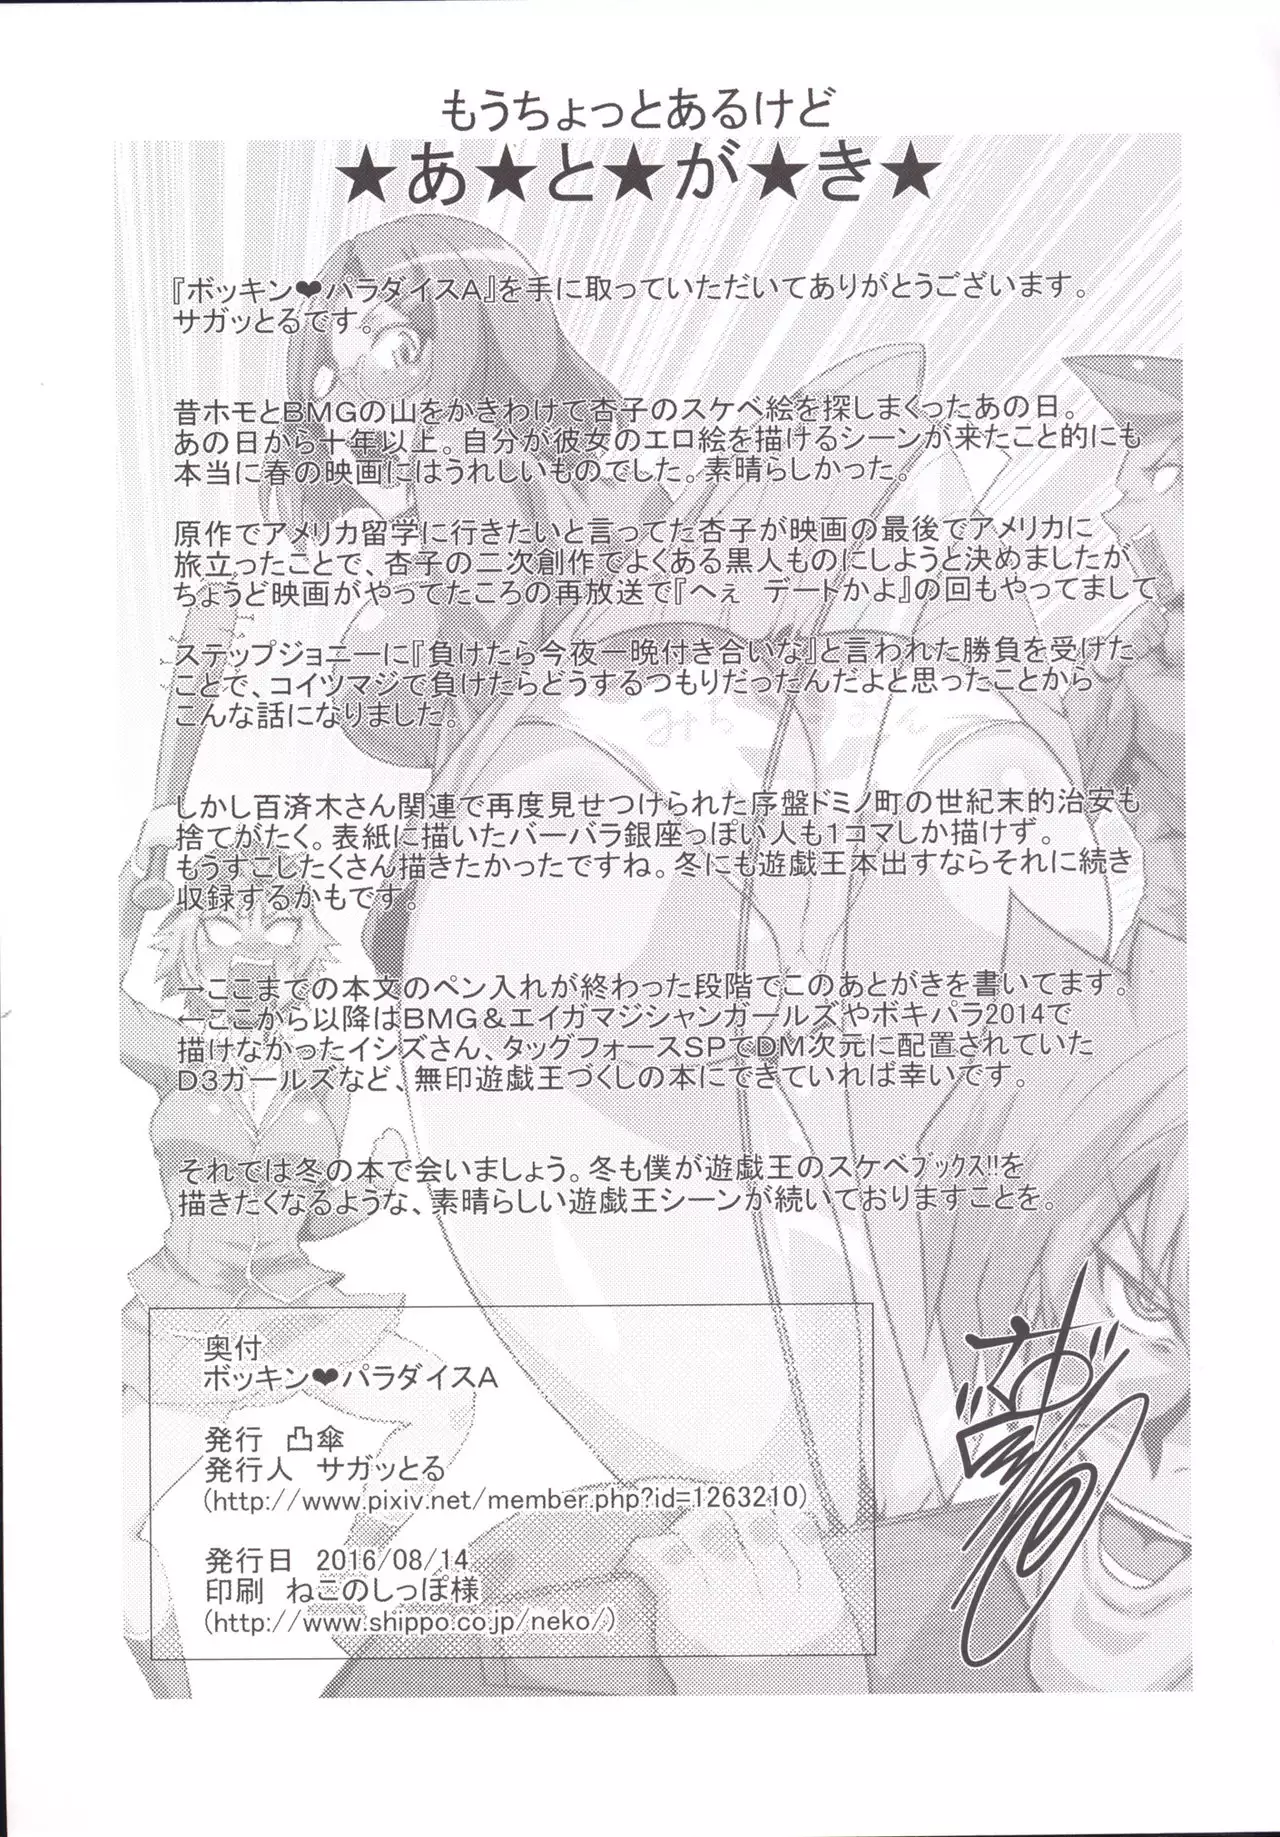 もうちょっとあるけど
★あ★と★が★き★
『ボッキン❤パラダイスA』を手に取っていただいてありがとうございます。
サガッとるです。
昔ホモとBMGの山をかきわけて杏子のスケベ絵を探しまくったあの日。
あの日から十年以上。自分が彼女のエロ絵を描けるシーンが来たこと的にも
本当に春の映画にはうれしいものでした。素晴らしかった。
原作でアメリカ留学に行きたいと言ってた杏子が映画の最後でアメリカに
旅立ったことで、杏子の二次創作でよくある黒人ものにしようと決めましたが
ちょうど映画がやってたころの再放送で『へぇ　デートかよ』の回もやってまして
ステップジョニーに『負けたら今夜一晩付き合いな』と言われた勝負を受けた
ことで、コイツマジで負けたらどうするつもりだったんだよと思ったことから
こんな話になりました。
しかし百済木さん関連で再度見せつけられた序盤ドミノ町の世紀末的治安も
捨てがたく。表紙に描いたバーバラ銀座っぽい人も1コマしか描けず。
もうすこしたくさん描きたかったですね。冬にも遊戯王本出すならそれに続き
収録するかもです。
→ここまでの本文のペン入れが終わった段階でこのあとがきを書いてます。
←ここから以降はBMG＆エイガマジシャンガールズやボキパラ2014で
描けなかったイシズさん、タッグフォースSPでDM次元に配置されていた
D3ガールズなど、無印遊戯王づくしの本にできていれば幸いです。
それでは冬の本で会いましょう。冬も僕が遊戯王のスケベﾌﾞｯｸｽ!!を
描きたくなるような、素晴らしい遊戯王シーンが続いておりますことを。
奥付
ボッキン❤パラダイスA
発行　凸傘
発行人　サガッとる
(http://www.pixiv.net/member.php?id=1263210)
発行日　2016/08/14
印刷　ねこのしっぽ様
(http://www.shippo.co.jp/neko/)